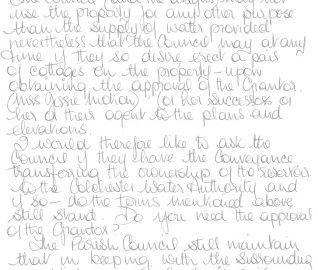 use the property for any other purpose
than the supply of water provided
nevertheless that the Council may at any
time if they so desire erect a pair
of cottages on the property - upon
obtaining the approval of the Grantor.
(Miss Jessie Inotian) (or her successors or
her of their agent to the plans and
elevations.
I would therefore like to ask the
Council if they have the Conveyance
transferring the ownership of the reservoir
to the Colchester Water Authority and
if so - do the terms mentioned above
still stand. Do you need the approval
of the Grantor?
The Parish Council still maintain
that in keeping with the surrounding